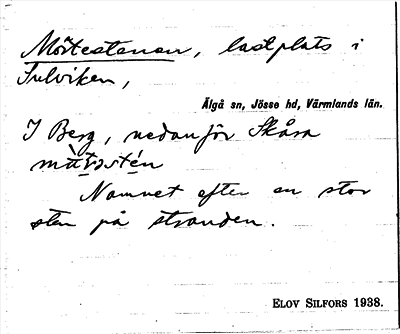 Mötestenen, lastplats i
Fulviken,
Älgå sn, Jösse hd, Värmlands län.
I Berg, nedanför Skåra
Namnet efter en stor
sten på stranden.
ELOV SILFORS 1938.